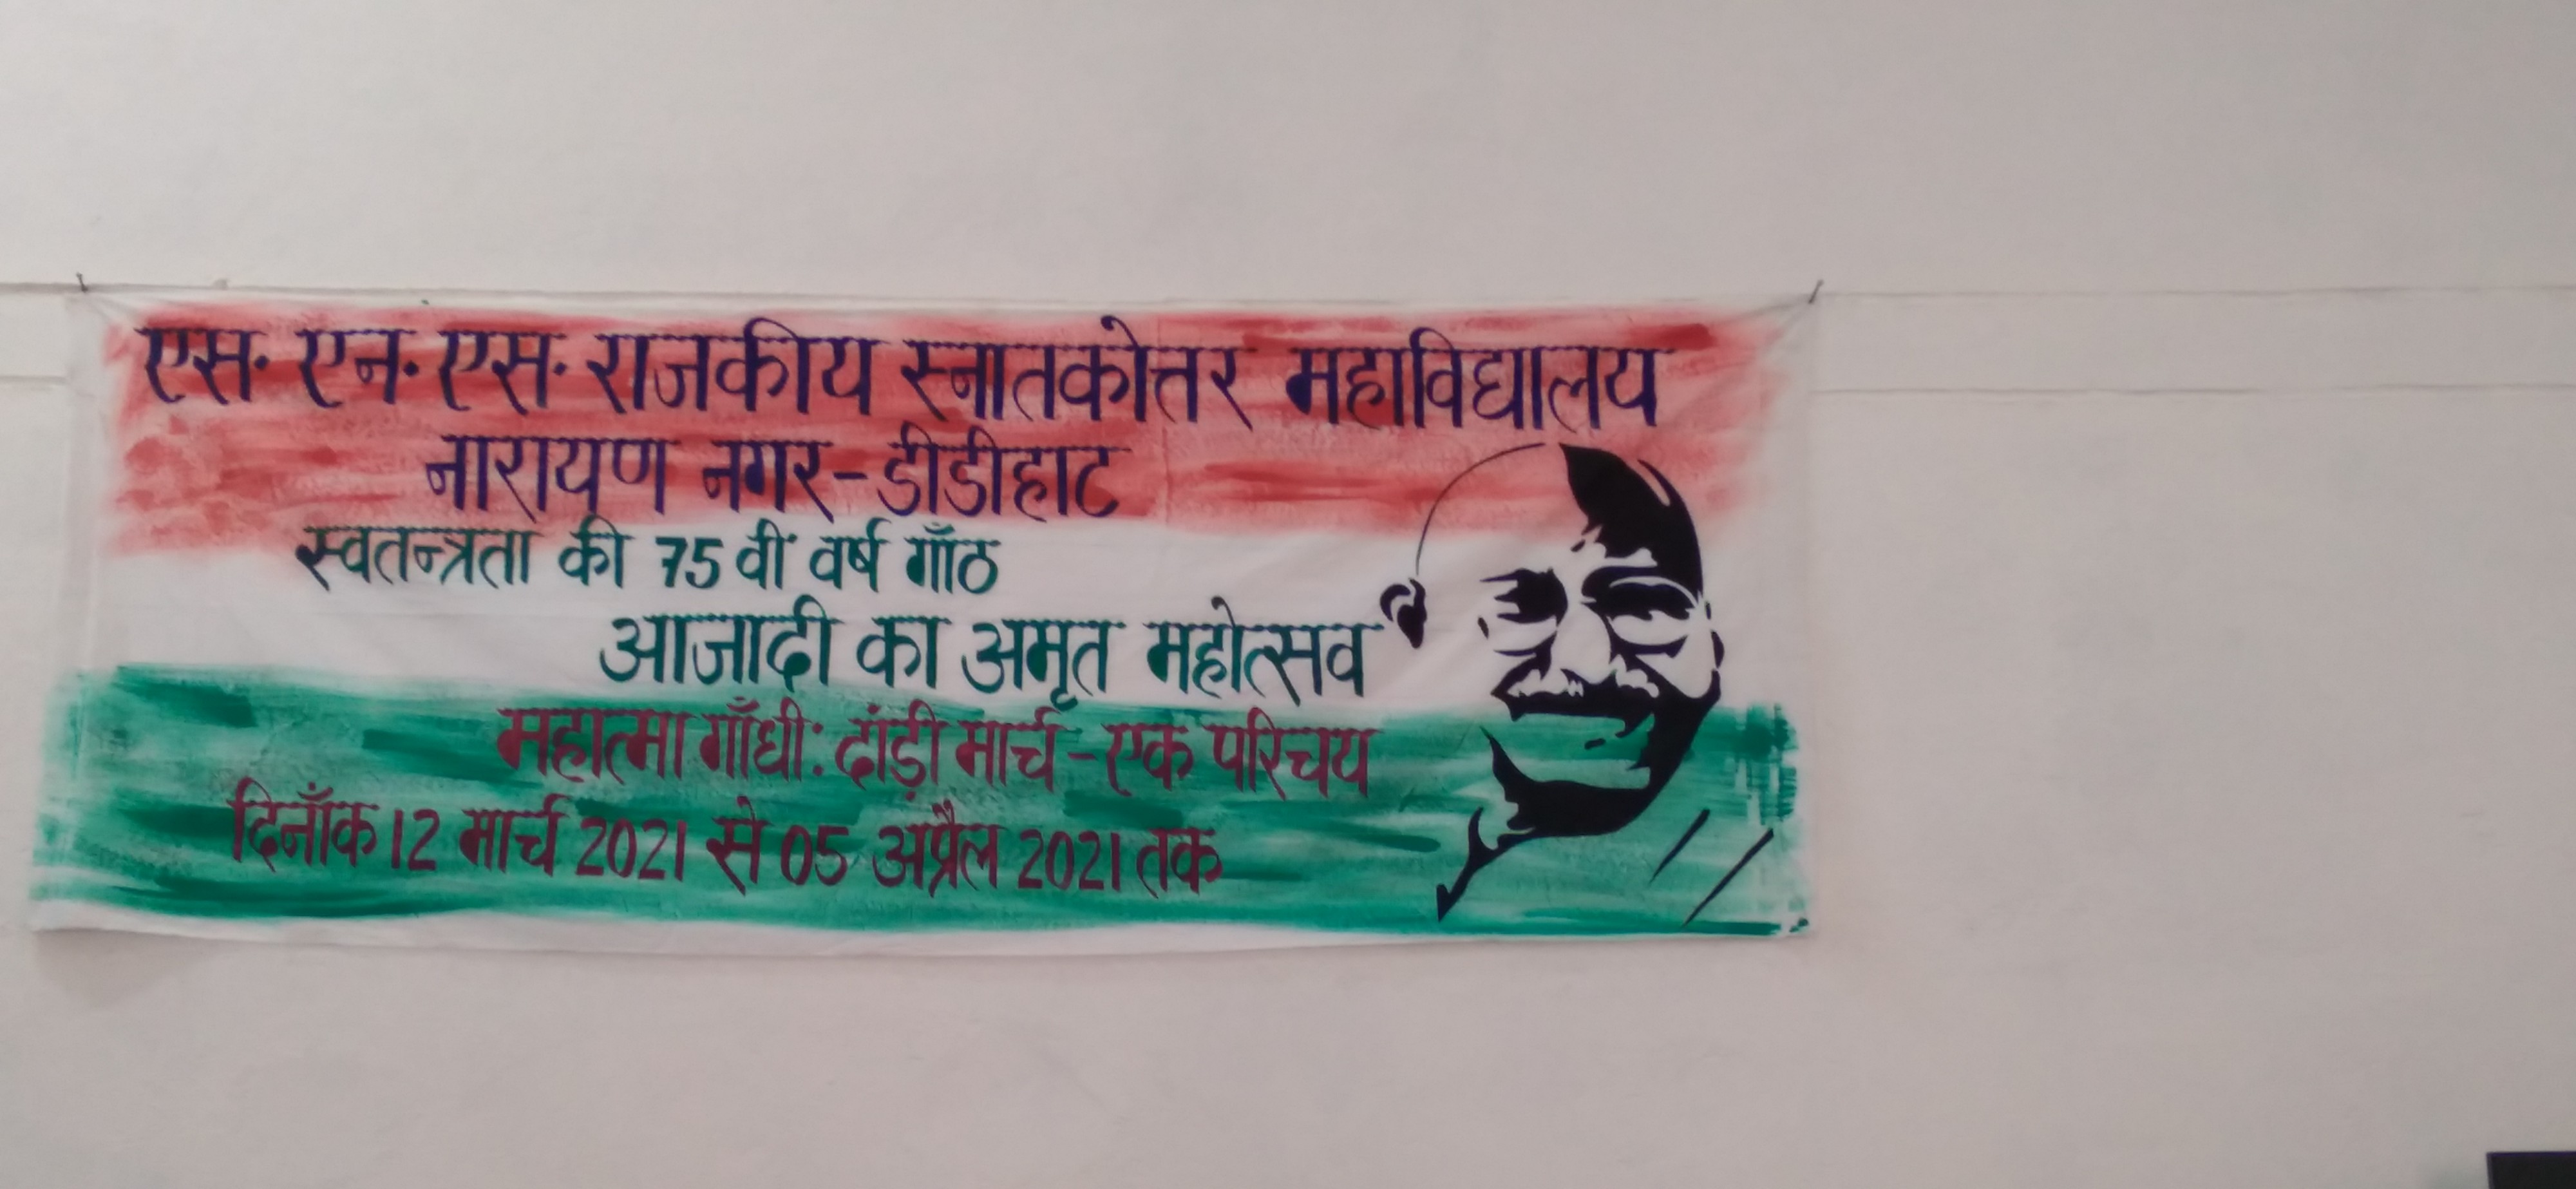 एस. एन. एस. राजकीय स्नातकोत्तर महाविद्यालय
नारायण नगर-डीडीहाट
स्वतन्त्रता की 75 वीं वर्ष गाँठ
आजादी का अमृत महोत्सव
महात्मा गाँधी: दांड़ी मार्च - एक परिचय
दिनाँक 12 मार्च 2021 से 05 अप्रैल 2021 तक